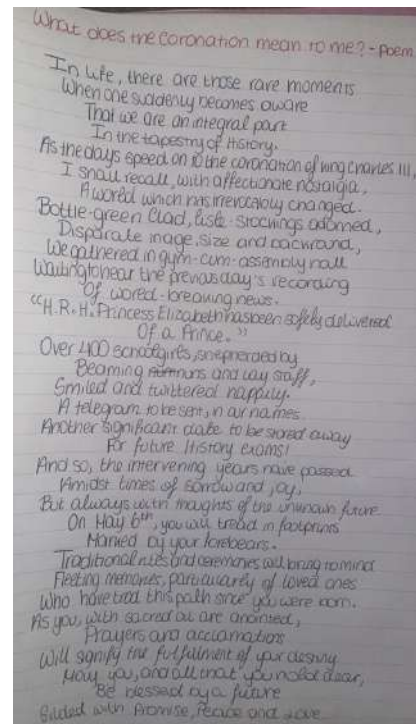 What does the coronation mean to me? - Poem
In life, there are those rare moments
When one suddenly becomes aware
That we are an integral part
In the tapestry of History.
As the days speed on to the coronation of King Charles III,
I shall recall, with affectionate nostalgia,
A world which has irrevocably changed.
Bottle-green clad, lisle-stockings adorned,
Disparate in age, size and backround,
We gathered in gym-cum-assembly hall
Waiting to hear the previous day's recording
Of world-breaking news.
"H.R.H. Princess Elizabeth has been safely delivered
Of a Prince."
Over 400 schoolgirls, shepherded by
Beaming nuns and lay staff,
Smiled and twittered happily.
A telegram to be sent, in our names.
Another significant date to be stored away
For future History exams!
And so, the intervening years have passed
Amidst times of sorrow and joy,
But always with thoughts of the unknown future.
On May 6th, you will tread in footprints
Marked by your forebears.
Traditional rites and ceremonies will bring to mind
Fleeting memories, particularly of loved ones
Who have trod this path since you were born.
As you, with sacred oil are anointed,
Prayers and acclamations
Will signify the fulfillment of your destiny
May you, and all that you hold dear,
Be blessed by a future
Gilded with Promise, Peace and Love